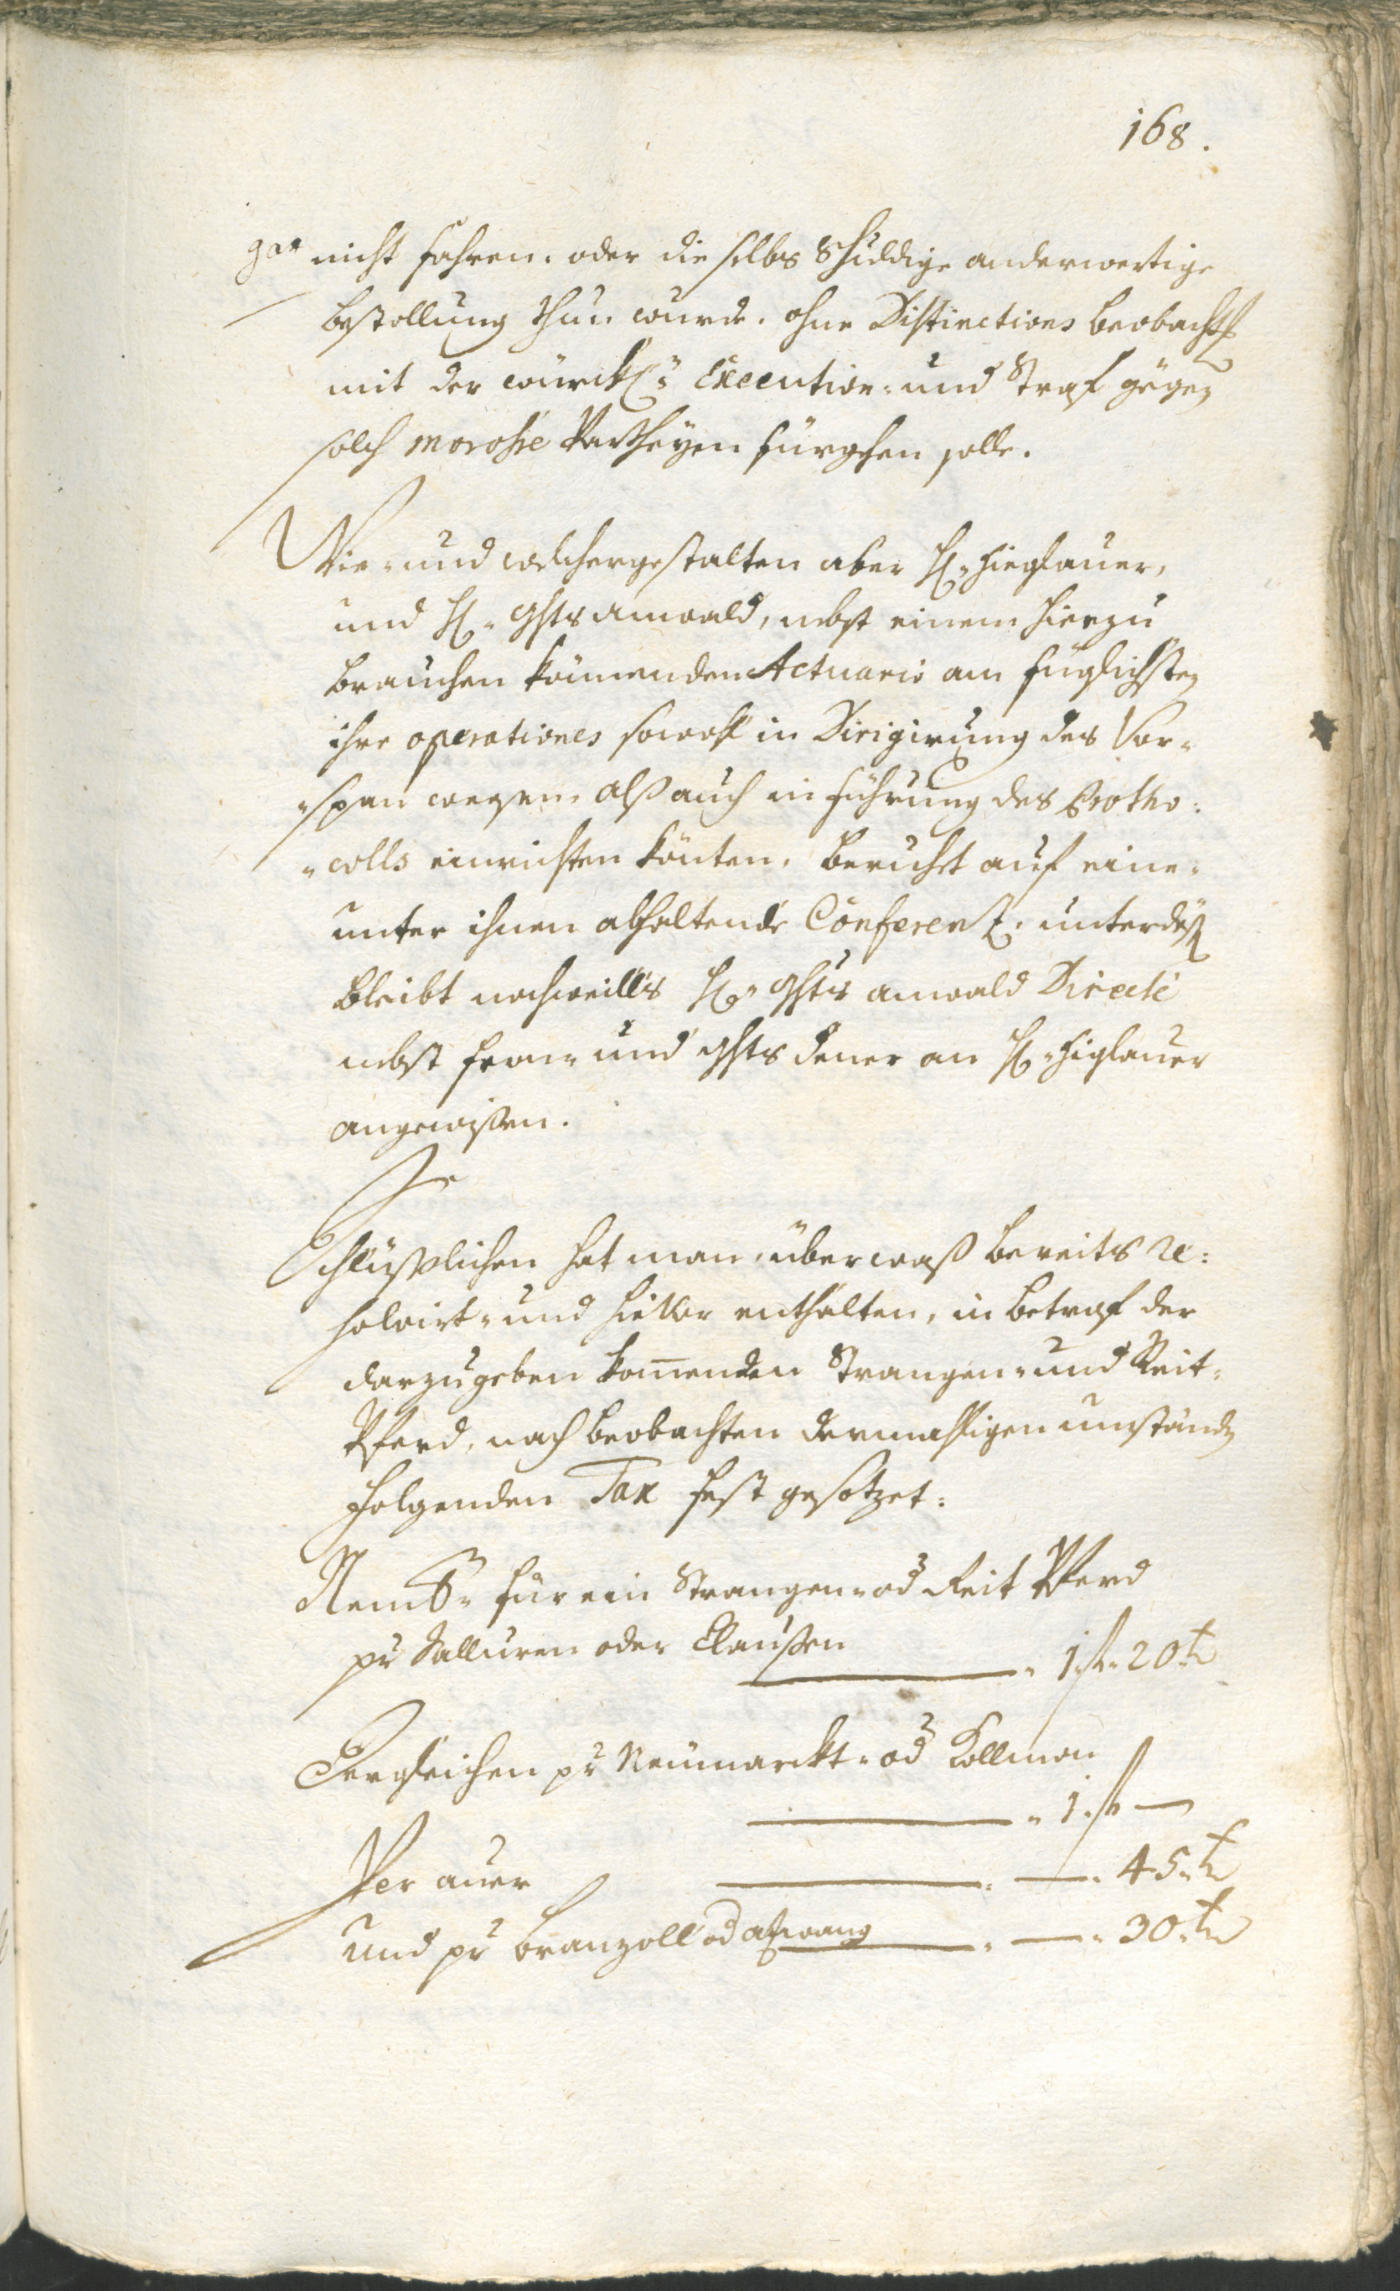 168.
gar nicht fahren. oder die selbs Schuldige anderwertige
bestollung thun wurde. ohne Distinctions beobachtg
mit der würckl: Execution- und Straf gegen
solch morosse Partheyen fürgehen solle.
Wie- und welchergestalten aber H: Hieglauer,
und H: Ghts anwald, nebst einem hierzu
brauchen könnenden Actuario am füglichsten
ihre operationes sowohl in Dirigirung des Vor-
-span weesens alß auch in führung des Protho:
-colls einrichten könten, beruhet auf eine-
unter ihnen abhaltende Conferenz. unterdeß
bleibt nochweills H: Ghts anwald Directe
nebst fron- und Ghts dener an H: Higlauer
angewißen.
Schlüßlichen hat man über waß bereits re:
solvirt- und hievor enthalten, in betraf der
darzugeben komenden Strangen- und Reit-
Pferd, nach beobachten dermahligen umständ
folgenden Tax fest gesötzet:
Nembl: für ein Strangen- od Reit Pferd
pr Sallurn oder Claußen 1 fl 20 kr
Dergleichen pr Neumarckt- od Kollman
1 fl —
Per auer — 45 kr
und pr branzoll od atzwang — 30 kr